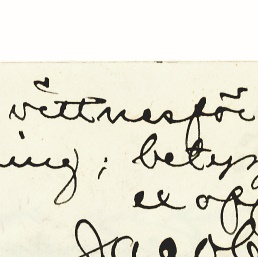 vittnesför
ning; betyg
ex off
Jacob